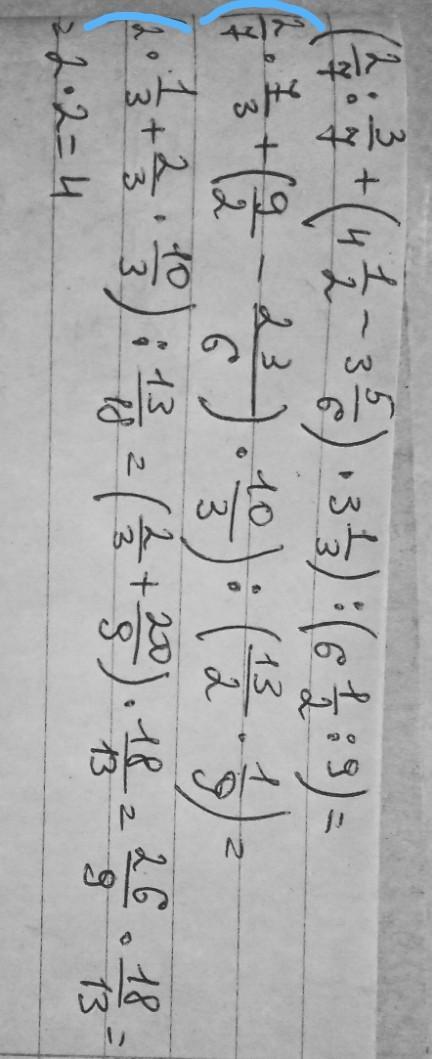 (2/7 : 3/7 + (4 1/2 - 3 5/6) · 3 1/3) : (6 1/2 : 9) =
(2/7 · 7/3 + (9/2 - 23/6) · 10/3) : (13/2 · 1/9) =
(2 · 1/3 + 2/3 · 10/3) : 13/18 = (2/3 + 20/9) · 18/13 = 26/9 · 18/13 =
= 2 · 2 = 4